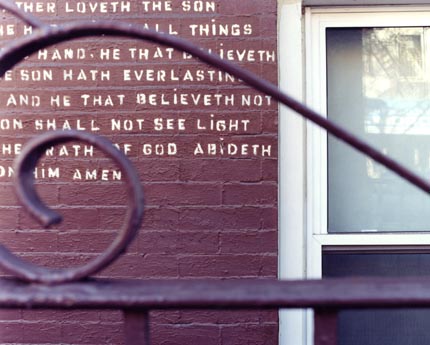 THER LOVETH THE SON
ALL THINGS
HAND. HE THAT BELIEVETH
E SON HATH EVERLASTING
AND HE THAT BELIEVETH NOT
ON SHALL NOT SEE LIGHT
HE RATH OF GOD ABIDETH
ON HIM AMEN